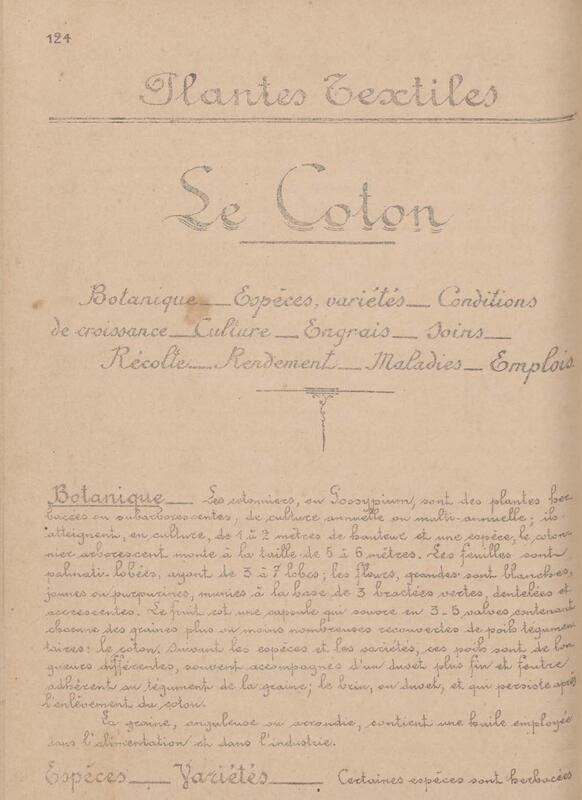 124
Plantes Textiles
Le Coton
Botanique — Espèces, variétés — Conditions
de croissance — Culture — Engrais — Soins —
Récolte — Rendement — Maladies — Emplois.
Botanique — Les cotonniers, ou Gossypium, sont des plantes her-
bacées ou subarborescentes, de culture annuelle ou multi-annuelle ; ils
atteignent, en culture, de 1 à 2 mètres de hauteur et une espèce, le coton-
nier arborescent monte à la taille de 5 à 6 mètres. Les feuilles sont
palmati-lobées, ayant de 3 à 7 lobes ; les fleurs, grandes sont blanches,
jaunes ou purpurines, munies à la base de 3 bractées vertes, dentelées et
accrescentes. Le fruit est une capsule qui s'ouvre en 3-5 valves contenant
chacune des graines plus ou moins nombreuses recouvertes de poils tégumen
taires : le coton. Suivant les espèces et les variétés, ces poils sont de lon
gueurs différentes, souvent accompagnés d'un duvet plus fin et feutré
adhérent au tégument de la graine ; le brin, ou duvet, et qui persiste après
l'enlèvement du coton.
La graine, anguleuse ou arrondie, contient une huile employée
dans l'alimentation et dans l'industrie.
Espèces — Variétés — Certaines espèces sont herbacées